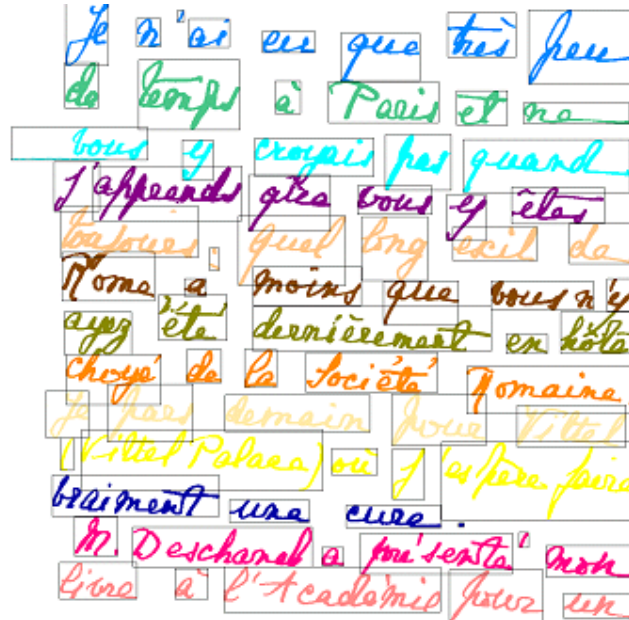 Je n'ai eu que très peu
de temps à Paris et ne
vous y croyais pas quand
j'apprends que vous y êtes
toujours. quel long exil de
Rome à moins que vous n'y
ayez été dernièrement en hôte
choyé de la Société Romaine
Je pars demain pour Vittel
(Vittel Palace) où j'espère faire
vraiment une cure.
M. Deschanel a présenté mon
livre à l'Académie pour un